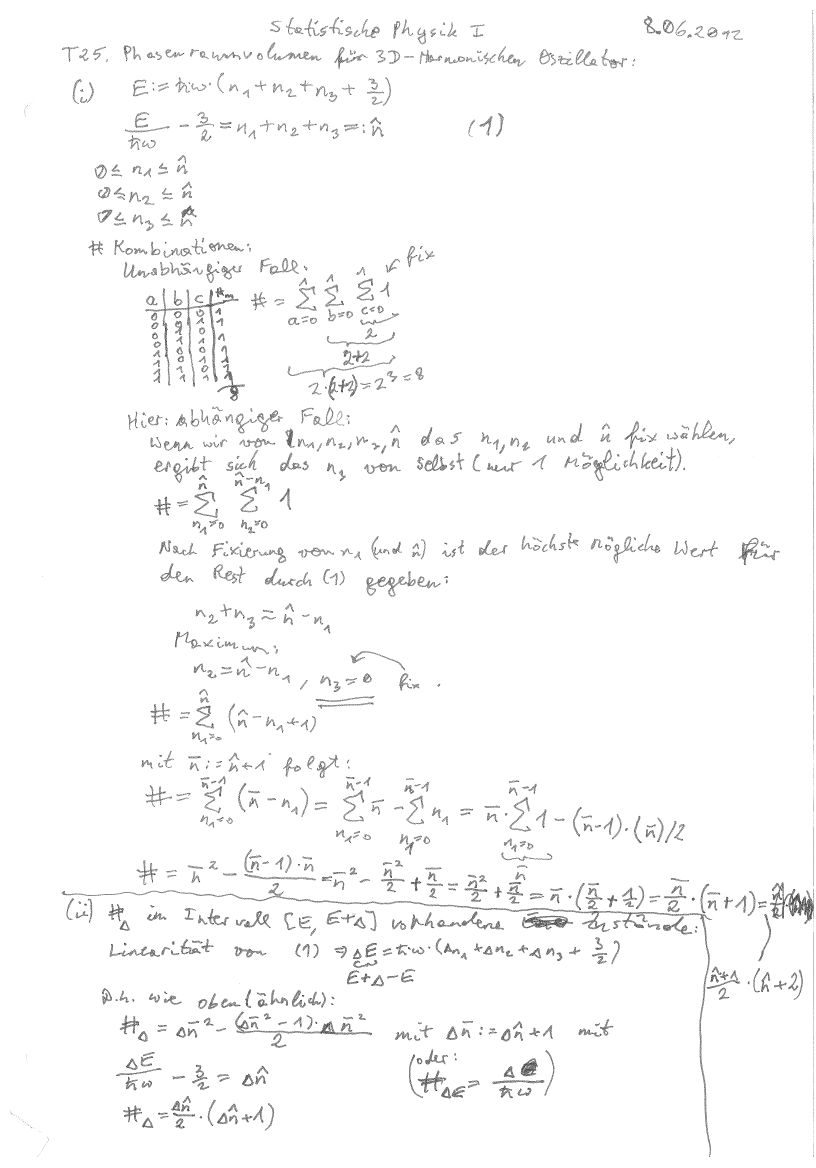 Statistische Physik I 8.06.2012
T25. Phasenraumvolumen für 3D-Harmonischen Oszillator:
(i) E:=ħω·(n₁+n₂+n₃+3/2)
E/ħω - 3/2 = n₁+n₂+n₃ =: n̂ (1)
0 ≤ n₁ ≤ n̂
0 ≤ n₂ ≤ n̂
0 ≤ n₃ ≤ n̂
# Kombinationen:
Unabhängiger Fall: fix
a b c
# = ∑_{a=0}^{1} ∑_{b=0}^{1} ∑_{c=0}^{1} 1
2
2+2
2·(2+2)=2³=8
0 0 0 1
0 0 1 1
8
Hier: abhängiger Fall:
Wenn wir von n₁,n₂,n₃,n̂ das n₁,n₂ und n̂ fix wählen,
ergibt sich das n₃ von selbst (nur 1 Möglichkeit).
# = ∑_{n₁=0}^{n̂} ∑_{n₂=0}^{n̂-n₁} 1
Nach Fixierung von n₁ (und n̂) ist der höchste mögliche Wert für
den Rest durch (1) gegeben:
n₂+n₃ = n̂-n₁
Maximum:
n₂=n̂-n₁, n₃=0 fix.
# = ∑_{n₁=0}^{n̂} (n̂-n₁+1)
mit n̄:=n̂+1 folgt:
# = ∑_{n₁=0}^{n̄-1} (n̄-n₁) = ∑_{n₁=0}^{n̄-1} n̄ - ∑_{n₁=0}^{n̄-1} n₁ = n̄·∑_{n₁=0}^{n̄-1} 1 - (n̄-1)·(n̄)/2
n̄
# = n̄² - (n̄-1)·n̄/2 = n̄² - n̄²/2 + n̄/2 = n̄²/2 + n̄/2 = n̄·(n̄/2 + 1/2) = n̄/2·(n̄+1) =
(n̂+1)/2·(n̂+2)
(ii) #_Δ im Intervall [E, E+Δ] vorhandene Zustände:
Linearität von (1) ⇒ ΔE = ħω·(Δn₁+Δn₂+Δn₃+3/2)
E+Δ-E
D.h. wie oben (ähnlich):
#_Δ = Δn̄² - (Δn̄²-1)·Δn̄²/2 mit Δn̄:=Δn̂+1 mit
ΔE/ħω - 3/2 = Δn̂
(oder:
#_ΔE = /ħω)
#_Δ = Δn̂/2·(Δn̂+1)